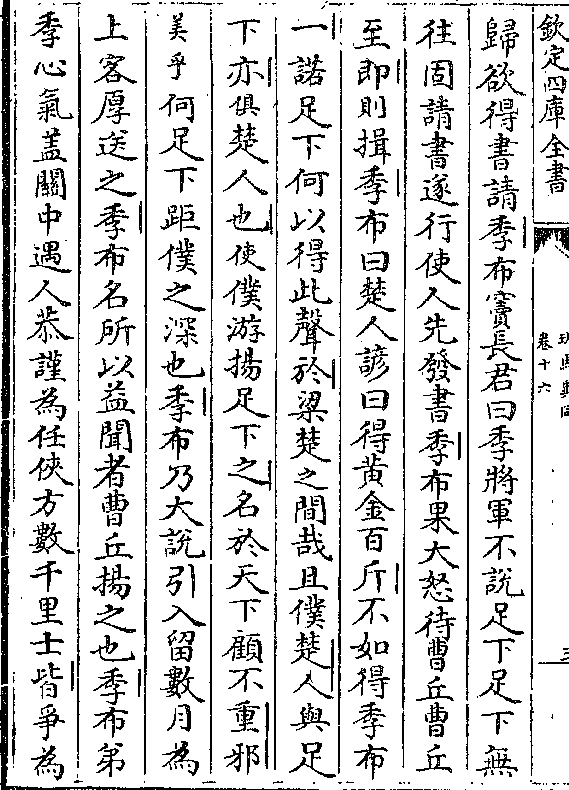 欽定四庫全書
卷十六
歸欲得書請季布竇長君曰季將軍不說足下足下無
往固請書遂行使人先發書季布果大怒待曹丘曹丘
至即則揖季布曰楚人諺曰得黄金百斤不如得季布
一諾足下何以得此聲於梁楚之間哉且僕楚人與足
下亦俱楚人也使僕游揚足下之名於天下顧不重邪
美乎何足下距僕之深也季布乃大說引入留數月為
上客厚送之季布名所以益聞者曹丘揚之也季布弟
季心氣盖關中遇人恭謹為任俠方數千里士皆爭為